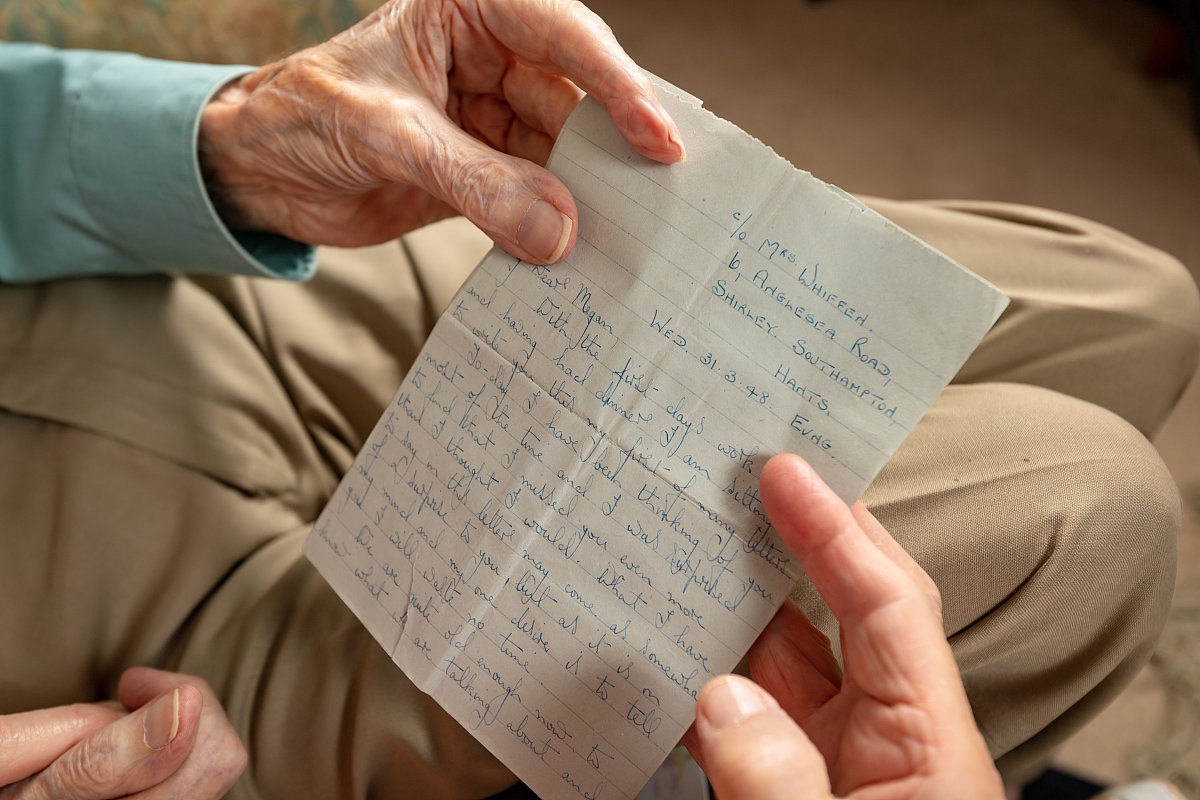 c/o Mrs. Whiffen.
6, Anglesea Road,
Shirley. Southampton,
Hants,
Wed. 31.3.48 Evng
Dear Megan
With the first day's work
and having had dinner I am sitting
to write you this my first of many letters
To-day I have been thinking of you
most of the time and I was surprised
to find that I missed you even more
than I thought I would. What I have
to say in this letter may come as somewhat
of a surprise to you, but as it is on
my mind and my one desire is to tell
you I will waste no time
We are quite old enough now to
know what we are talking about and